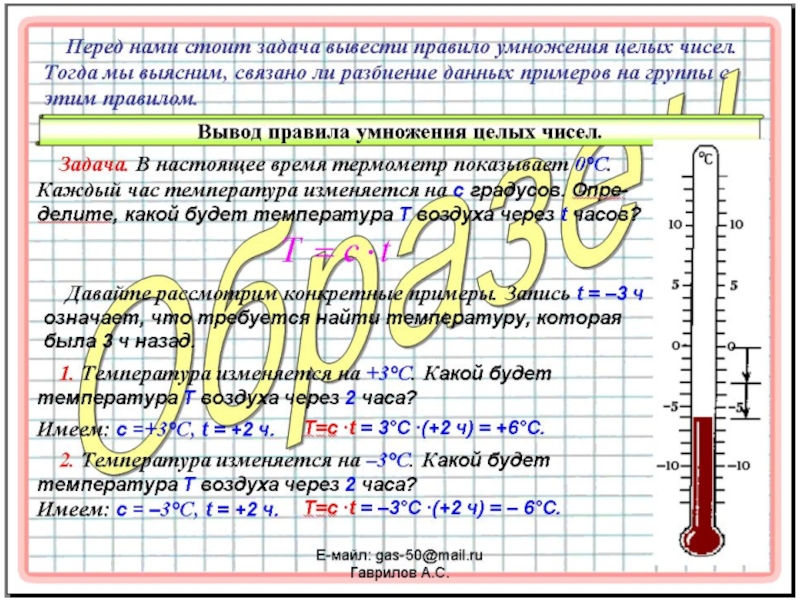 Перед нами стоит задача вывести правило умножения целых чисел.
Тогда мы выясним, связано ли разбиение данных примеров на группы с
этим правилом.
Вывод правила умножения целых чисел.
Задача. В настоящее время термометр показывает 0°С.
Каждый час температура изменяется на с градусов. Опре-
делите, какой будет температура Т воздуха через t часов?
T = c · t
Давайте рассмотрим конкретные примеры. Запись t = –3 ч
означает, что требуется найти температуру, которая
была 3 ч назад.
1. Температура изменяется на +3°С. Какой будет
температура Т воздуха через 2 часа?
Имеем: с =+3°С, t = +2 ч. Т=с ·t = 3°С ·(+2 ч) = +6°С.
2. Температура изменяется на –3°С. Какой будет
температура Т воздуха через 2 часа?
Имеем: с = –3°С, t = +2 ч. Т=с ·t = –3°С ·(+2 ч) = – 6°С.
Е-майл: gas-50@mail.ru
Гаврилов А.С.
Образец
°С
10 10
5 5
0 0
–5 –5
–10 –10